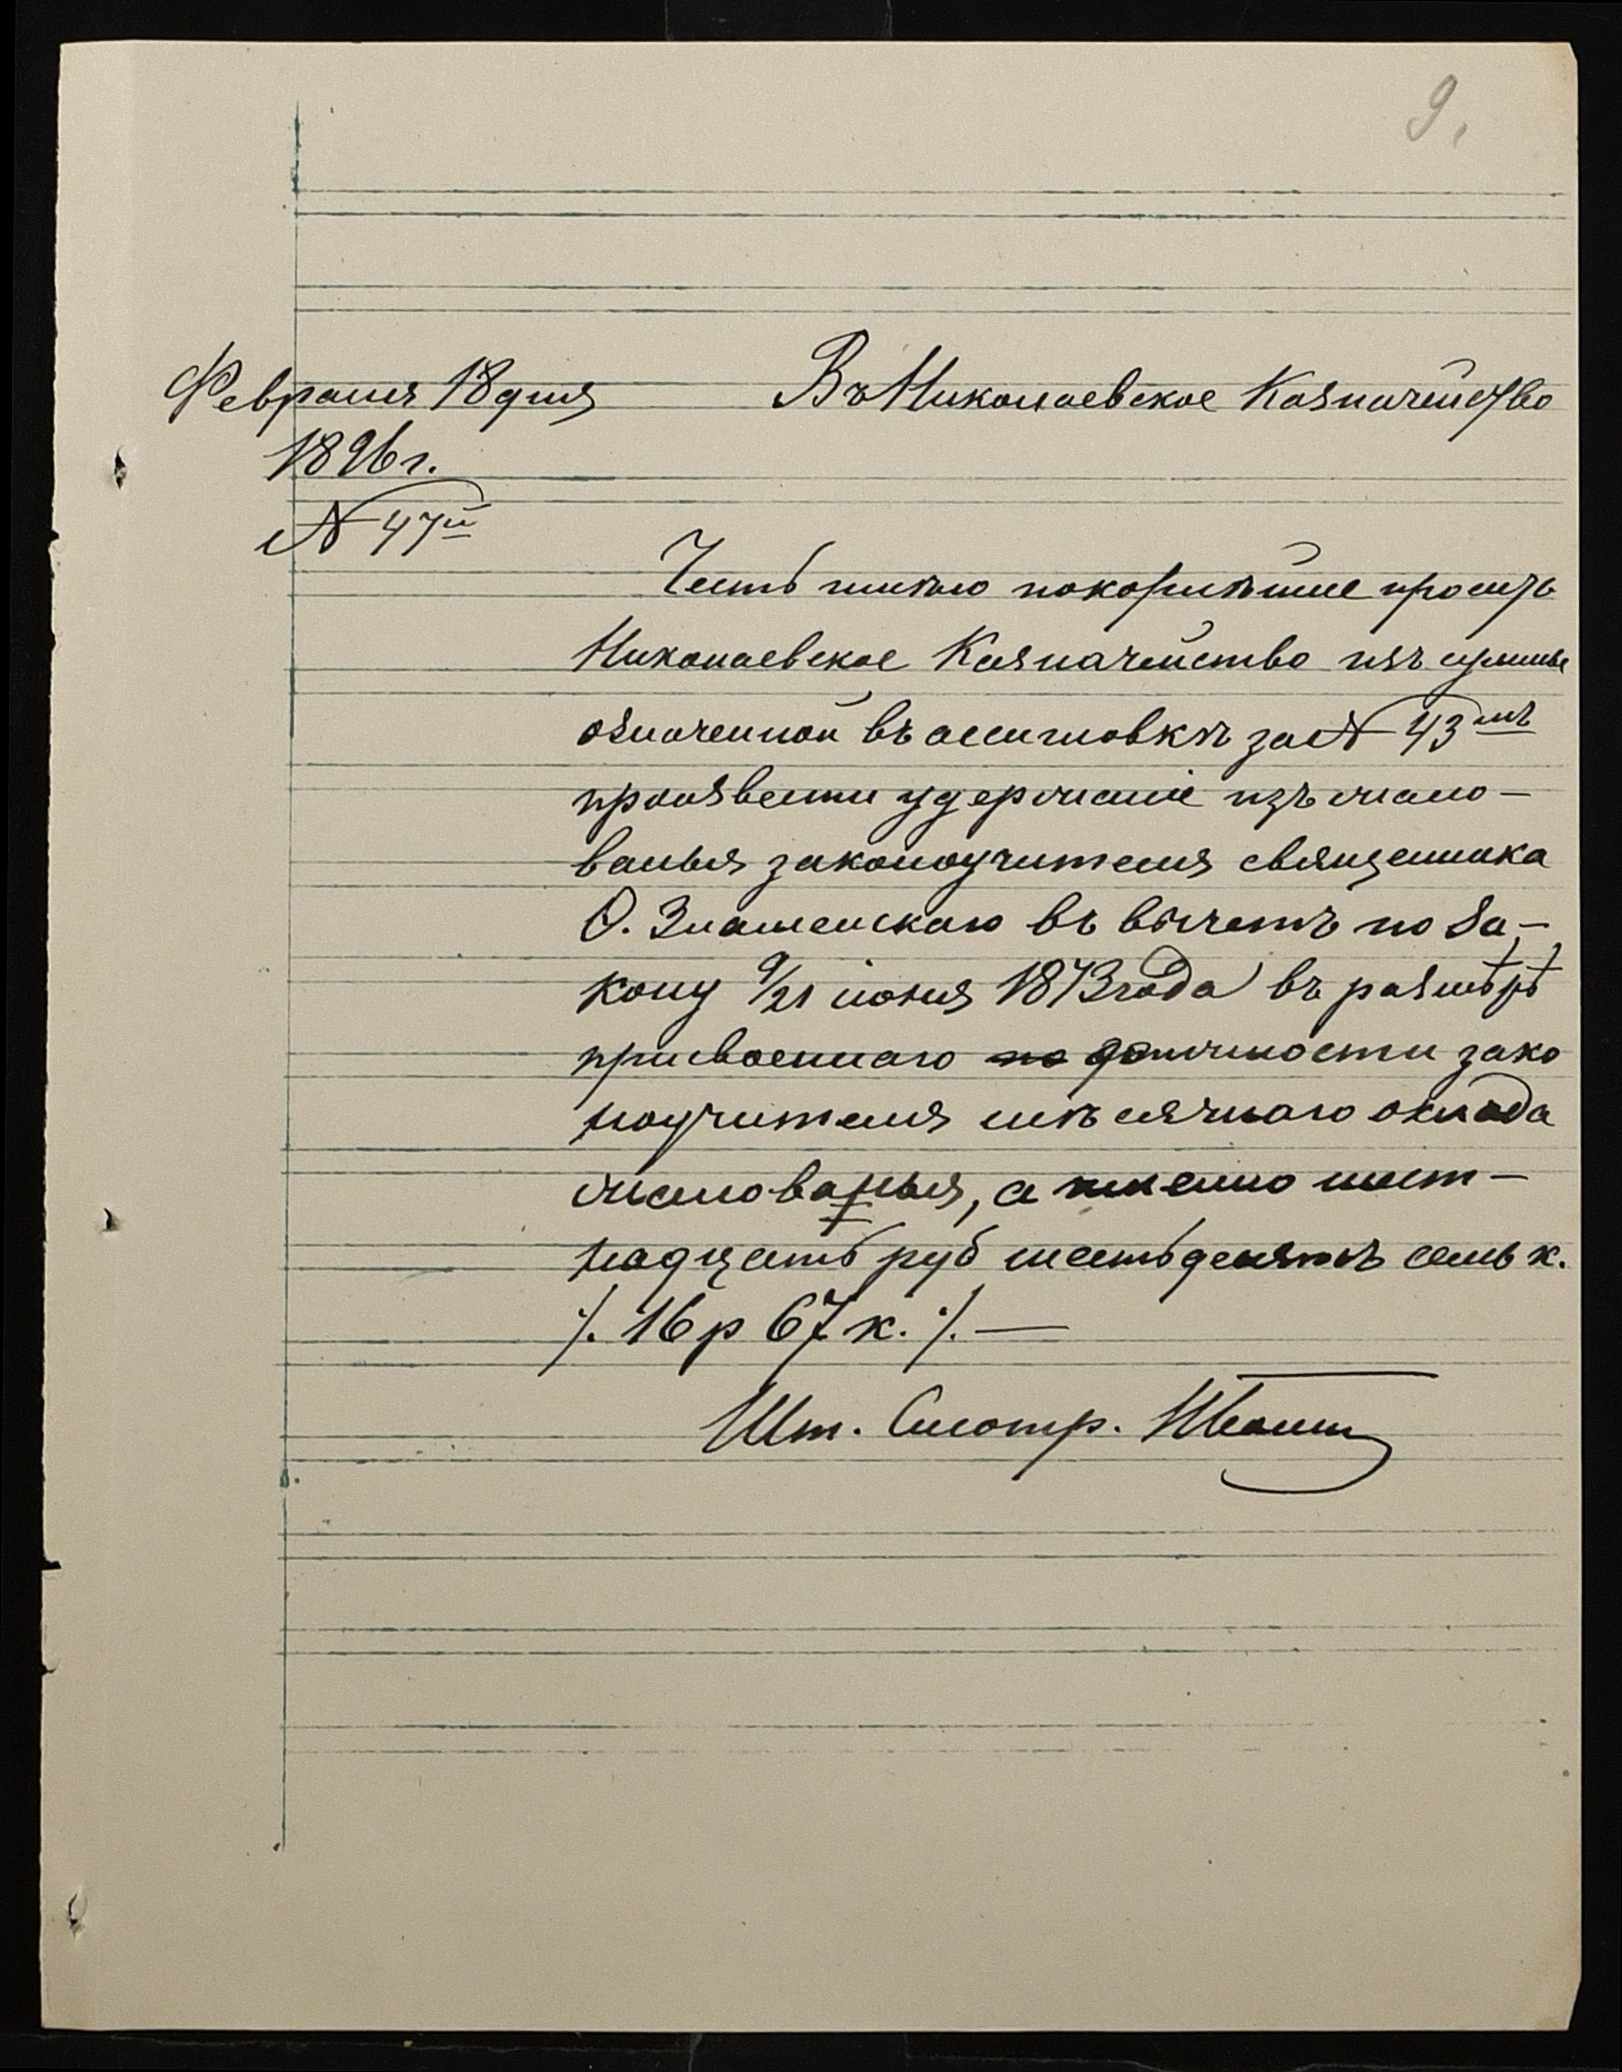 9.
Февраля 18 дня
1896 г.
№ 47й
Въ Николаевское Казначейство
Честь имѣю покорнѣйше просить
Николаевское Казначейство изъ суммы
означенной въ ассигновкѣ за № 43мъ
произвести удержаніе изъ жало-
ванья законоучителя священника
О. Знаменскаго въ вычетъ по за-
кону 9/21 іюня 1873 года въ размѣрѣ
присвоеннаго по должности зако
ноучителя мѣсячнаго оклада
жалованья, а именно шест-
надцать руб шестьдесятъ семь к.
/. 16 р 67 к. /. —
Шт. Смотр.